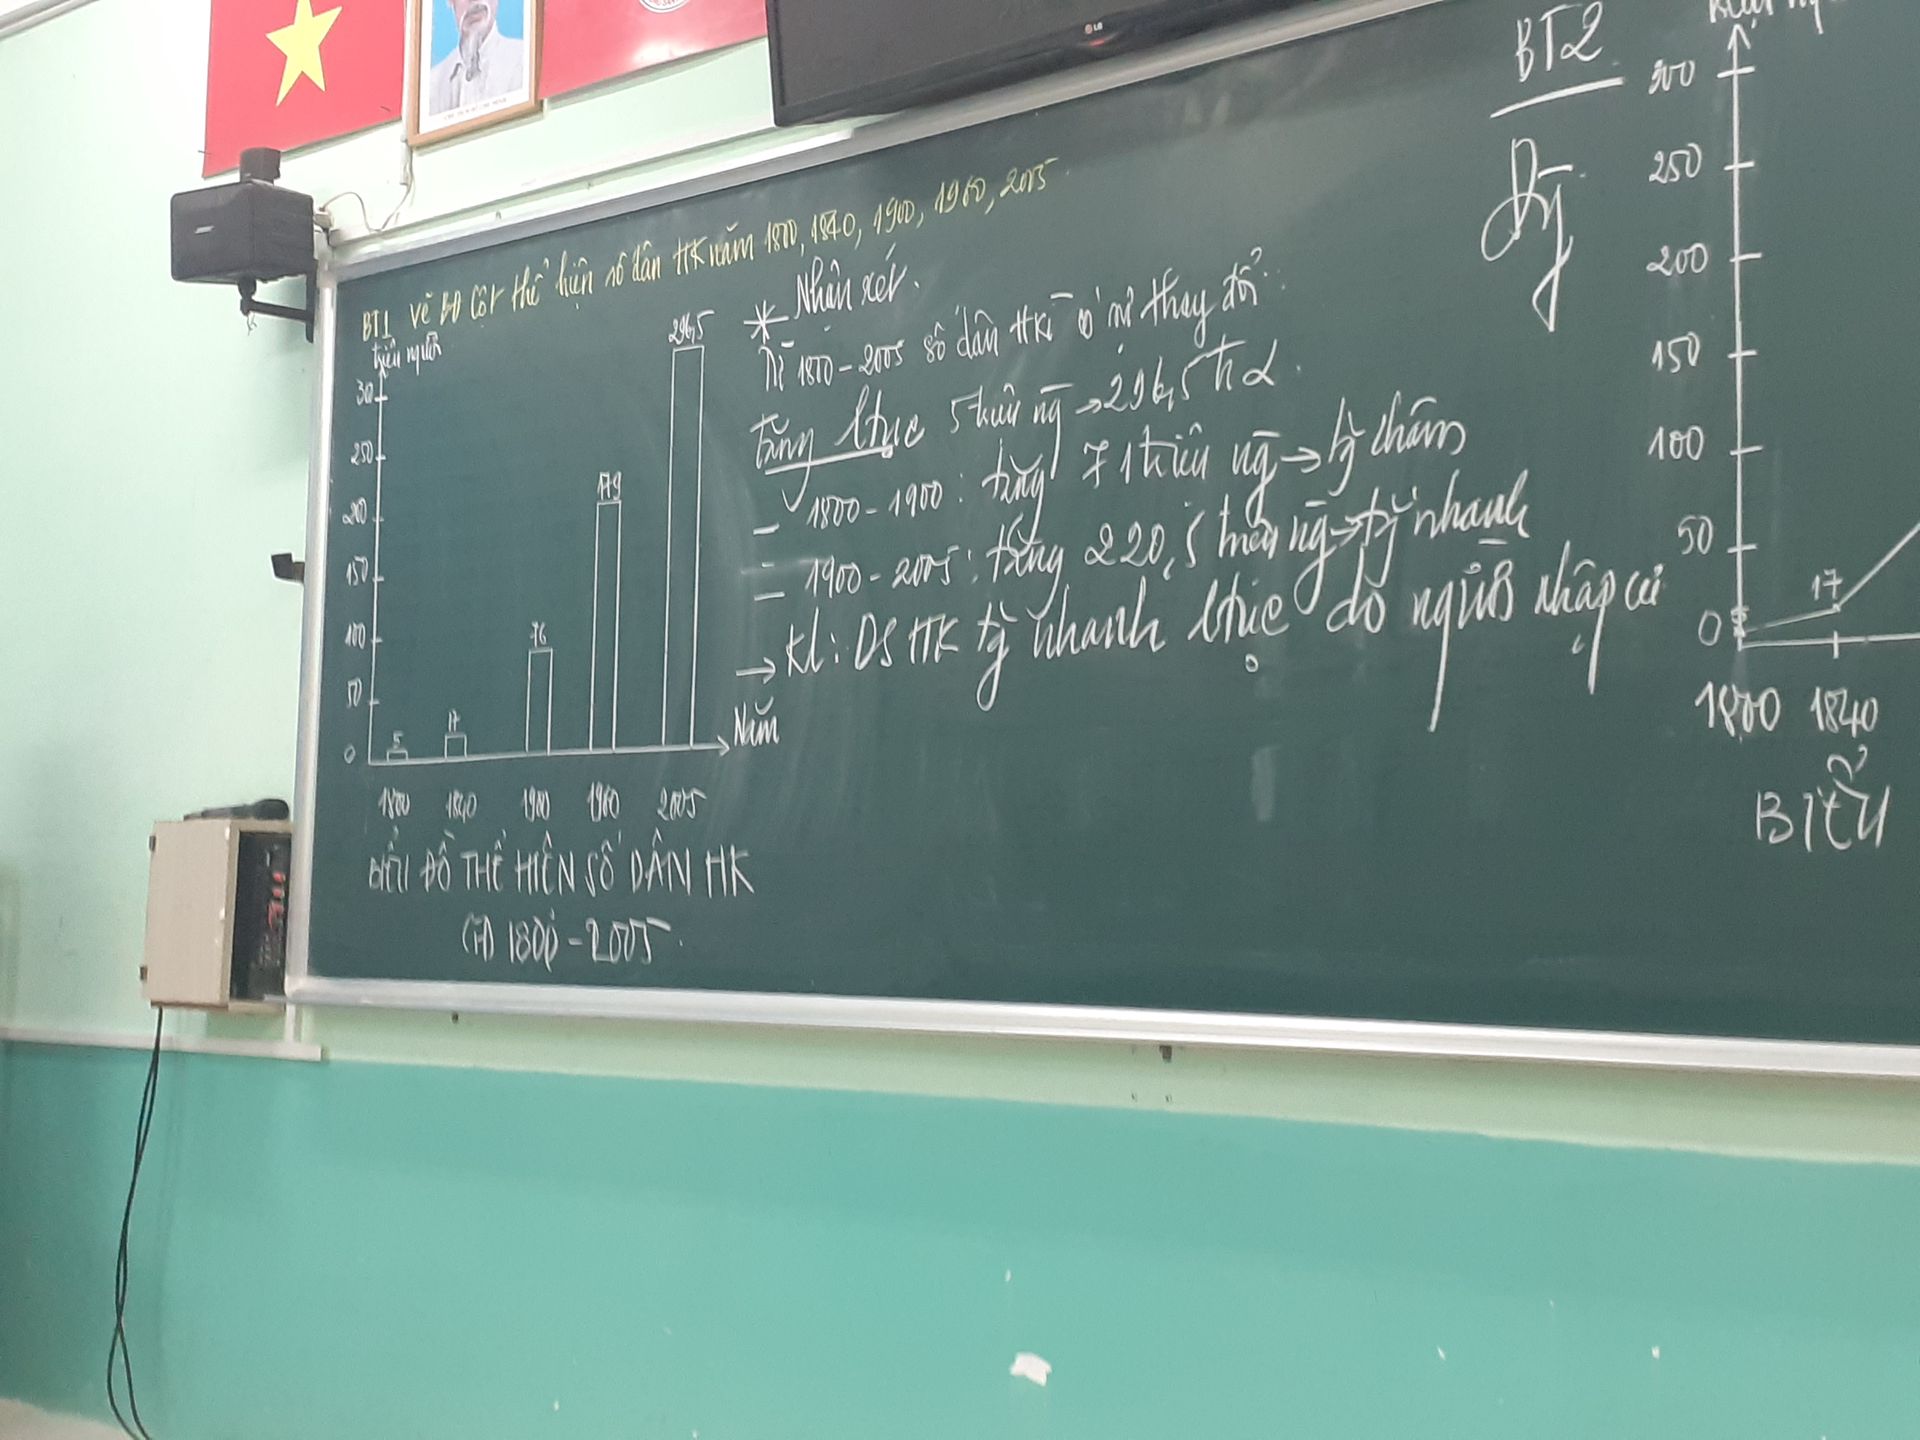 LG
BT1 Vẽ BĐ Cột thể hiện số dân HK năm 1800, 1840, 1900, 1960, 2005
triệu người
300
250
200
150
100
50
0
5
17
76
179
296,5
Năm
1800 1840 1900 1960 2005
BIỂU ĐỒ THỂ HIỆN SỐ DÂN HK
1800 - 2005
* Nhận xét.
Từ 1800 - 2005 số dân HKì có sự thay đổi
tăng ltục 5 triệu ng → 296,5
- 1800 - 1900: tăng 71 triệu ng → tg chậm
- 1900 - 2005: tăng 220,5 triệu ng → tg nhanh
→ KL: DS HK tg nhanh ltục do người nhập cư
BT2
300
250
200
150
100
50
0
5
17
1800 1840
BIỂU